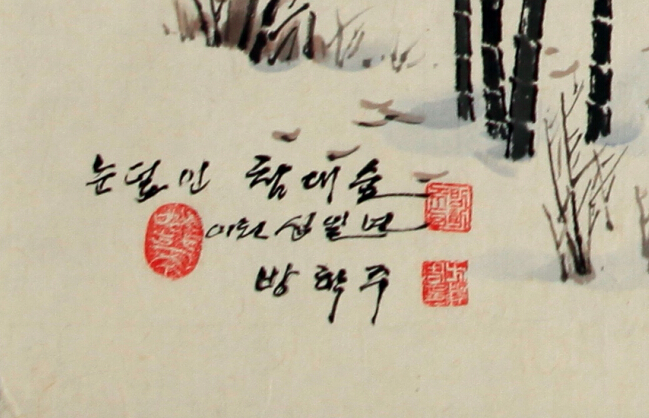 눈덮인 참대숲
이천 십일년
방학주